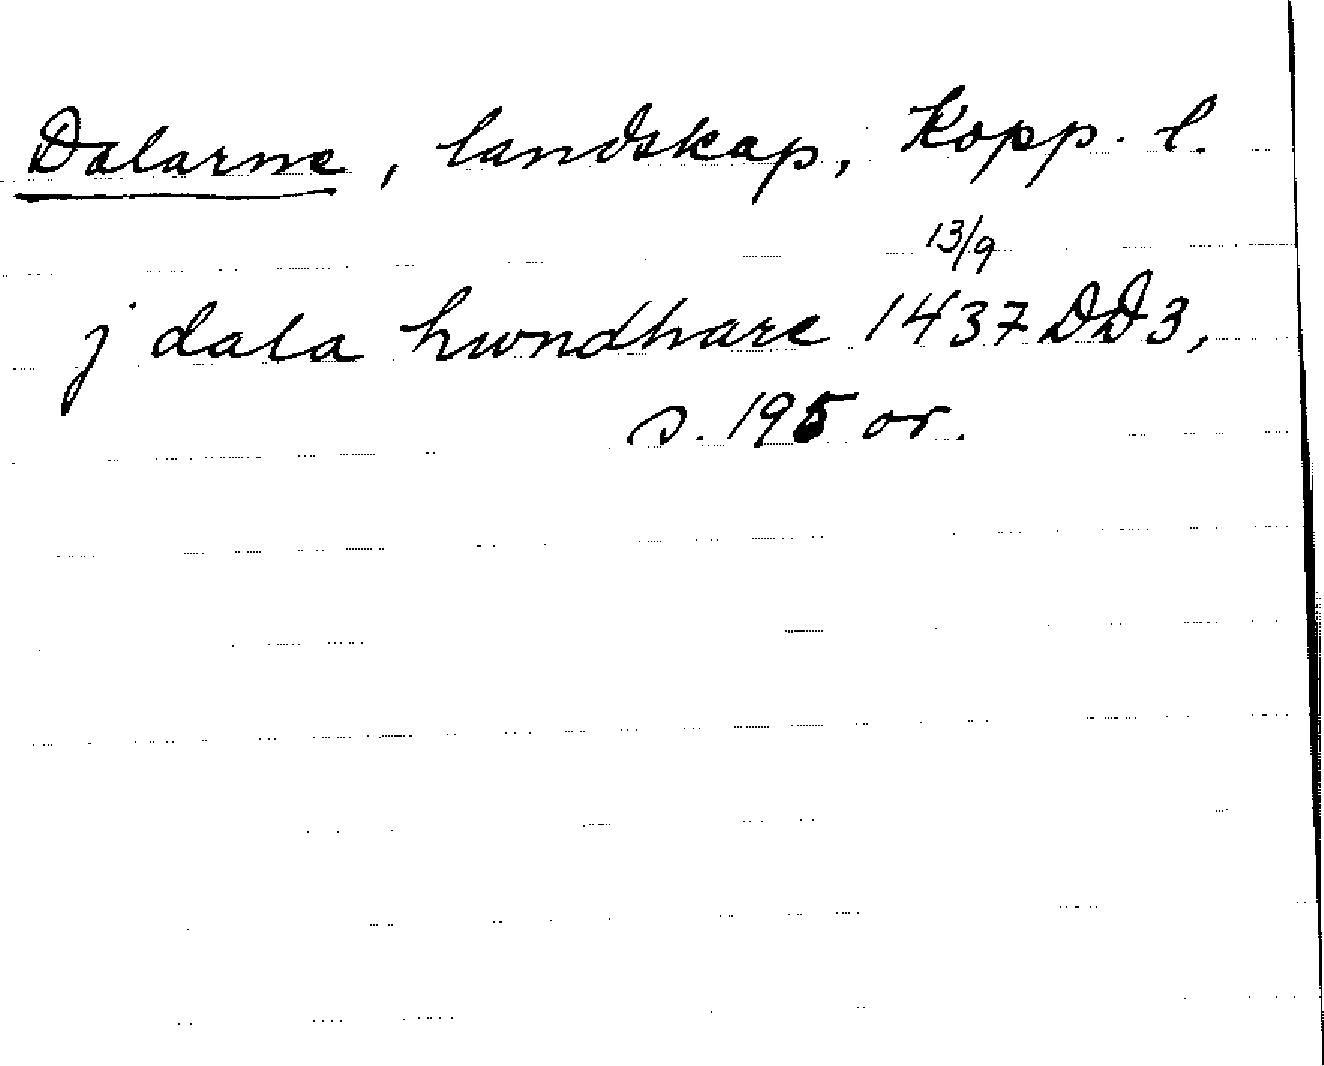 Dalarne, landskap, Kopp. l.
13/9
j dala hwndhare 1437 DD3,
s. 195 or.